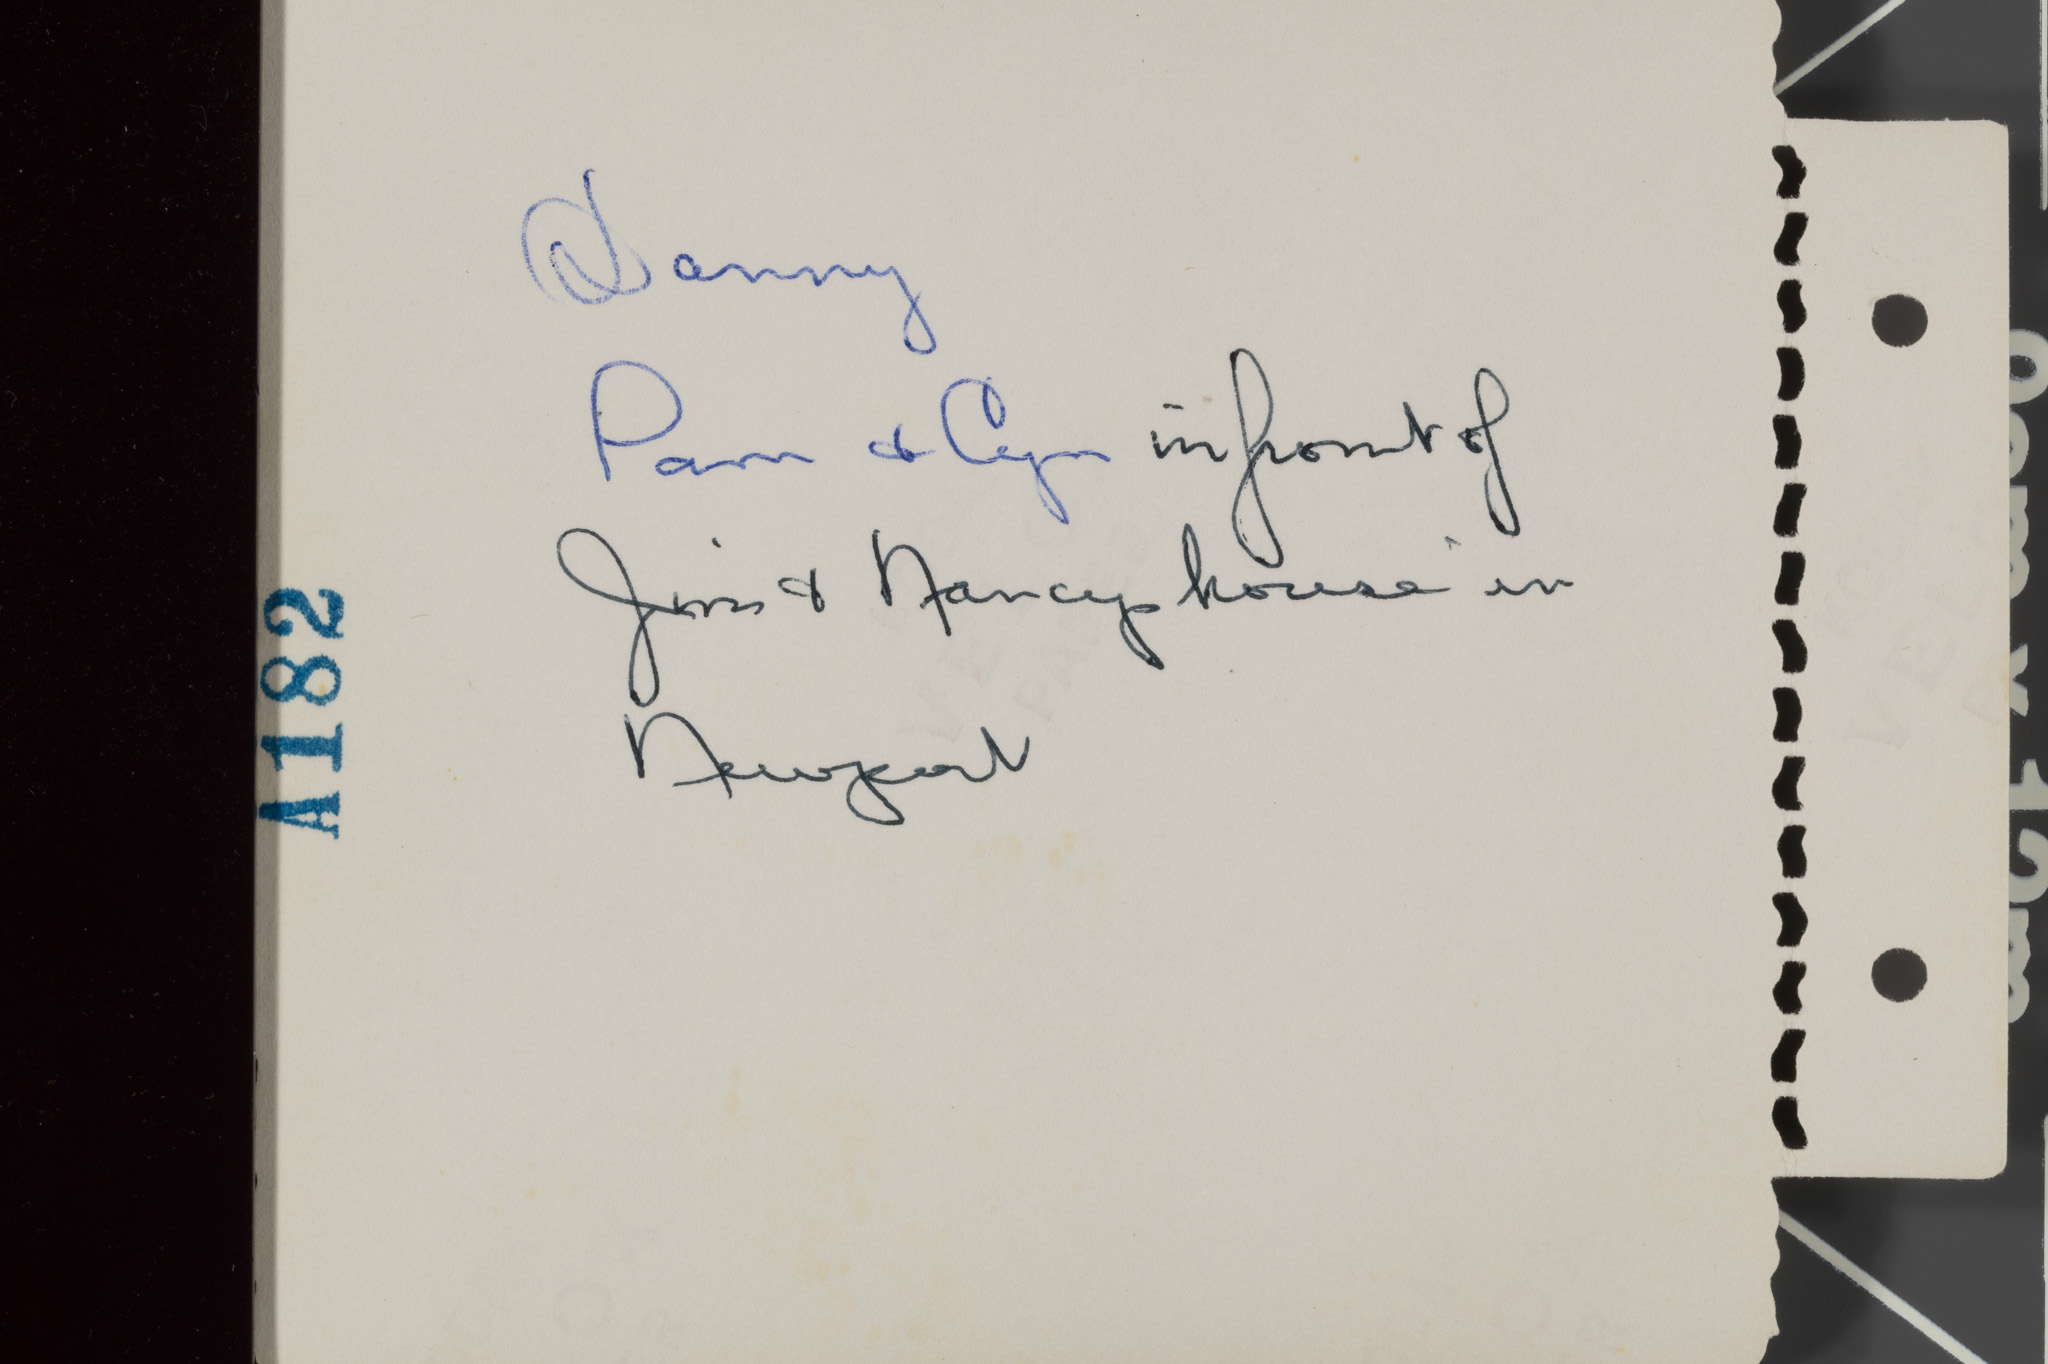 Danny
Pam & Cyn in front of
Jims & Nancys house in
Newport
A182